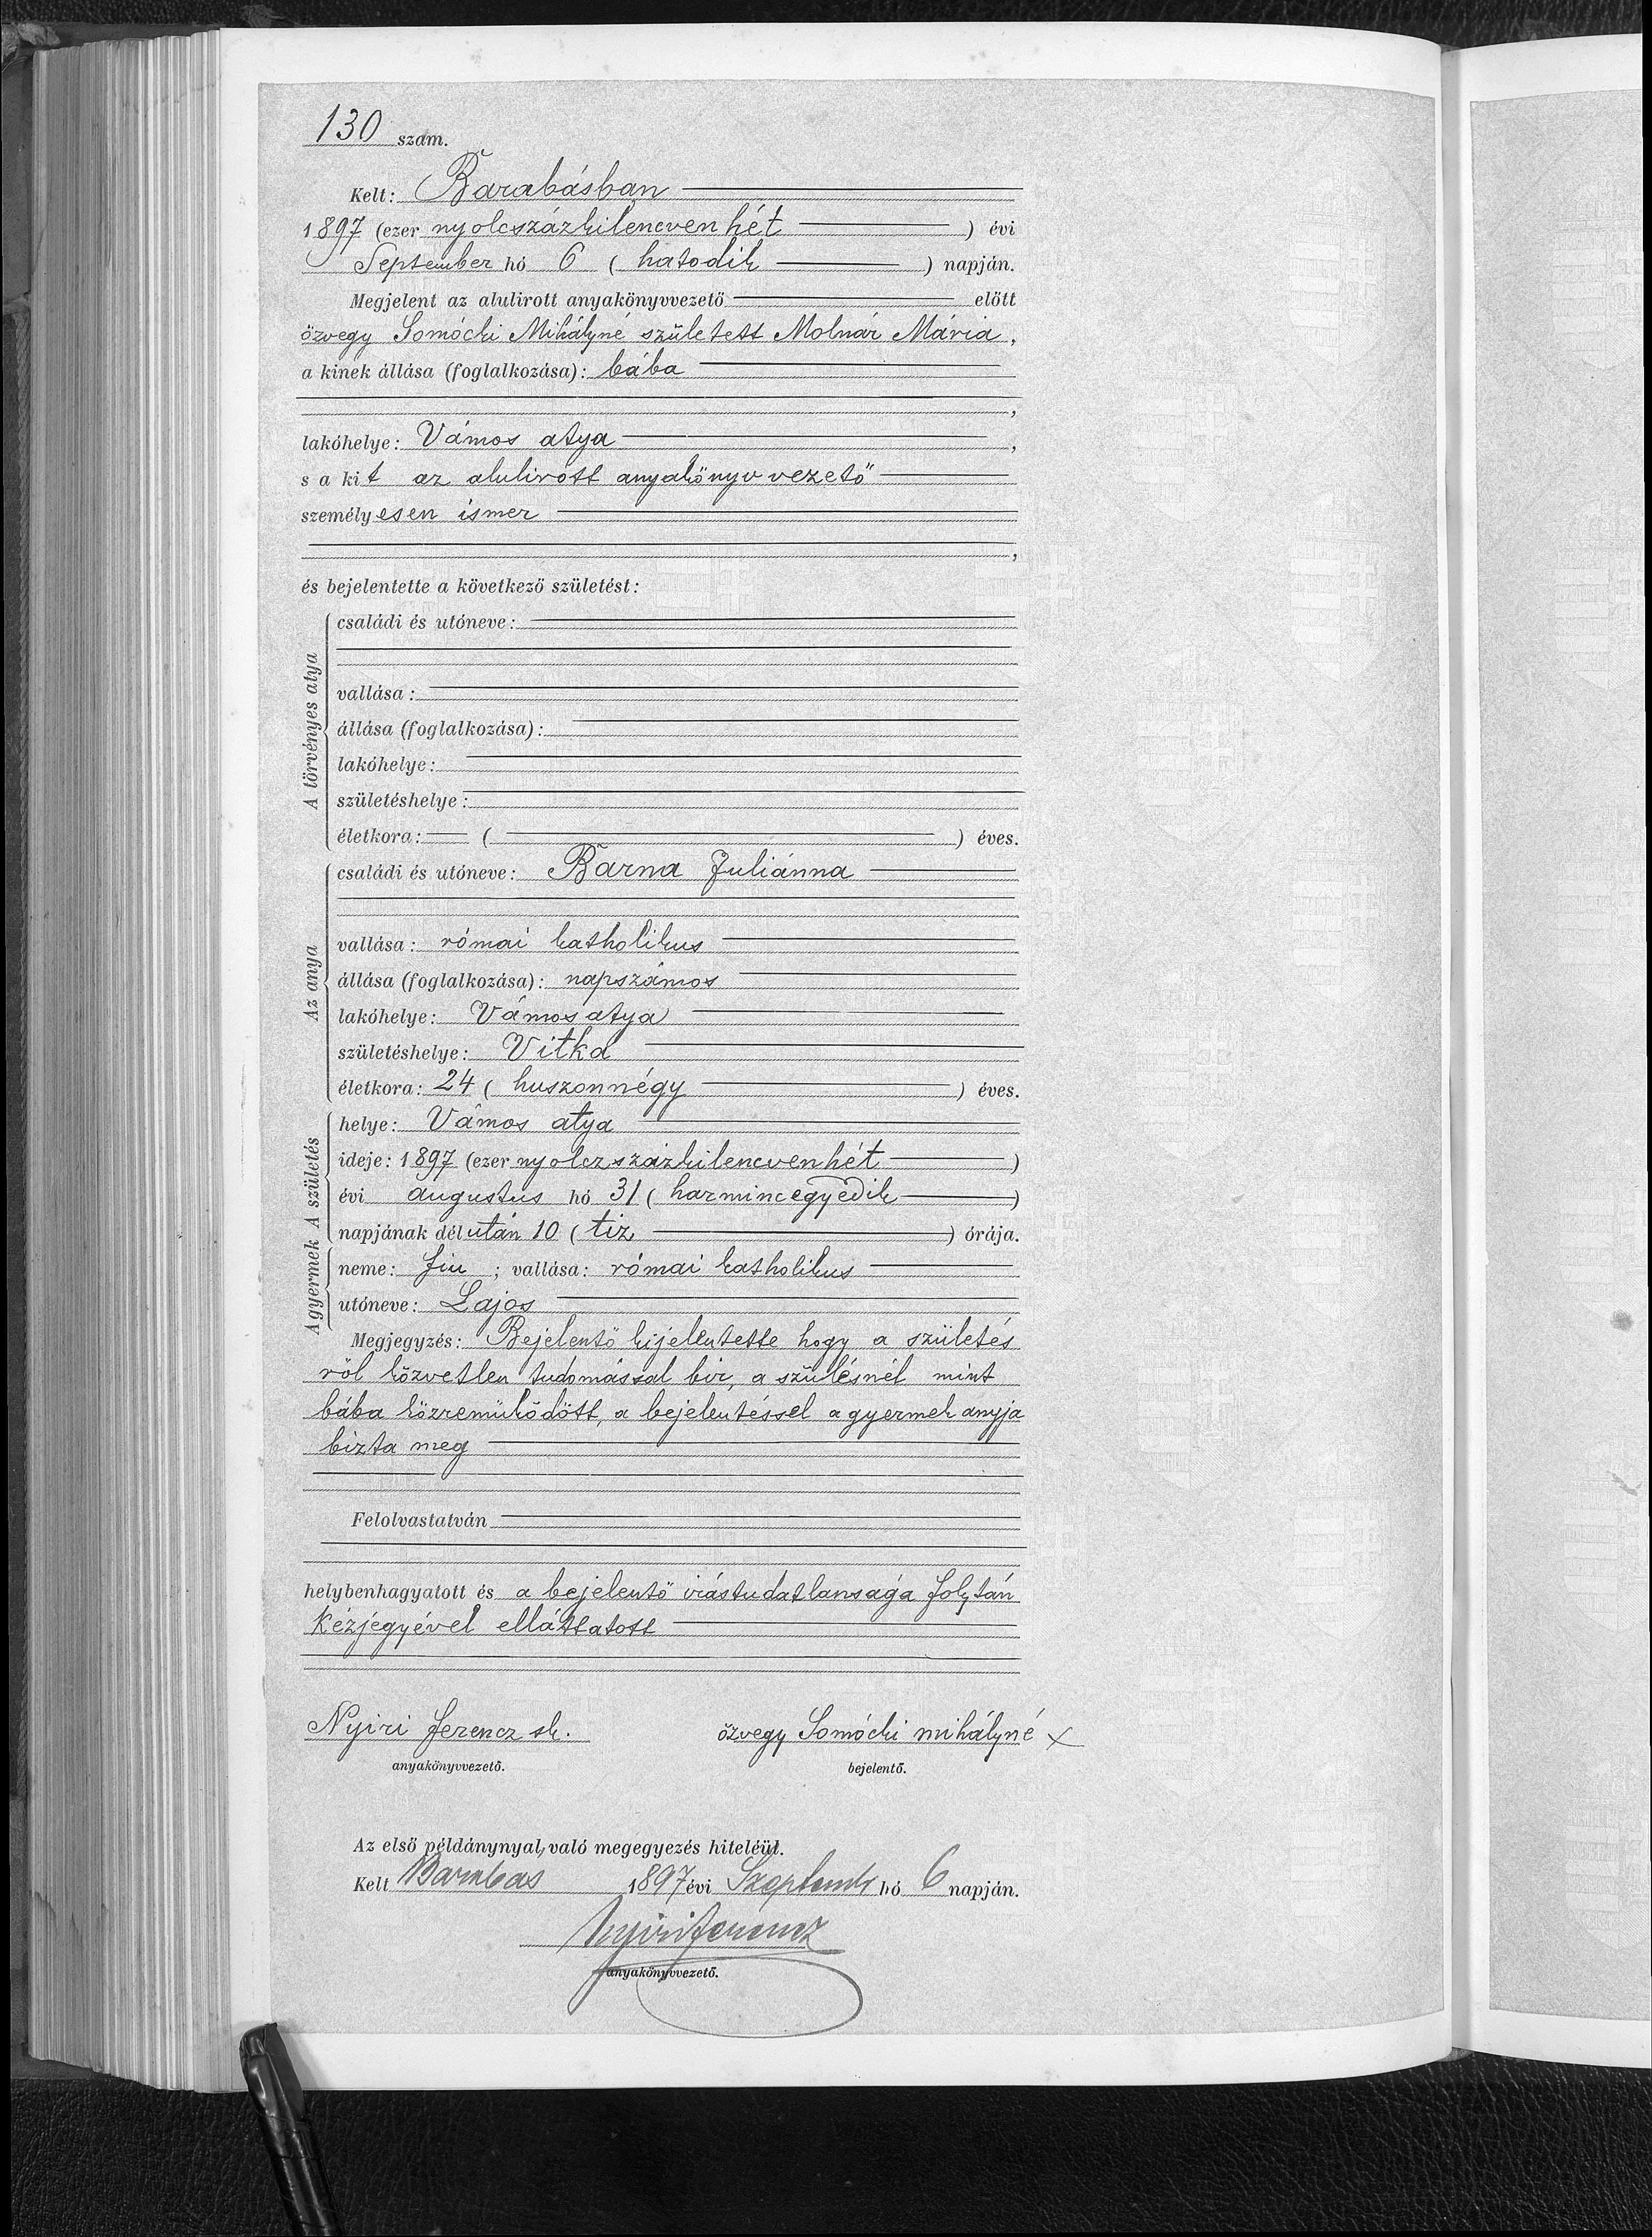 130 szám.
Kelt: Barabásban
1897 (ezer nyolcszázkilencven hét ) évi
September hó 6 ( hatodik ) napján.
Megjelent az alulirott anyakönyvvezető előtt
özvegy Somócki Mihályné született Molnár Mária,
a kinek állása (foglalkozása): bába
,
lakóhelye: Vámos atya ,
s a kit az alulirott anyakönyv vezető
személyesen ismer
,
és bejelentette a következő születést:
A törvényes atya
családi és utóneve:
vallása:
állása (foglalkozása):
lakóhelye:
születéshelye:
életkora: ( ) éves.
Az anya
családi és utóneve: Barna Juliánna
vallása: római katholikus
állása (foglalkozása): napszámos
lakóhelye: Vámos atya
születéshelye: Vitka
életkora: 24 ( huszonnégy ) éves.
A születés
helye: Vámos atya
ideje: 1897 (ezer nyolczszázkilencven hét )
évi augustus hó 31 ( harmincegyedik )
napjának délután 10 ( tiz ) órája.
A gyermek
neme: fiu ; vallása: római katholikus
utóneve: Lajos
Megjegyzés: Bejelentő kijelentette hogy a születés
ről közvetlen tudomással bir, a szülésnél mint
bába közreműködött, a bejelentéssel a gyermek anyja
bizta meg
Felolvastatván
helybenhagyatott és a bejelentő irástudatlansága folytán
kézjegyével elláttatott
Nyiri Ferencz sk. özvegy Somócki mihályné x
anyakönyvvezető. bejelentő.
Az első példánynyal való megegyezés hiteléül.
Kelt Barabas 1897 évi Szeptemb hó 6 napján.
Nyiri Ferencz
anyakönyvvezető.